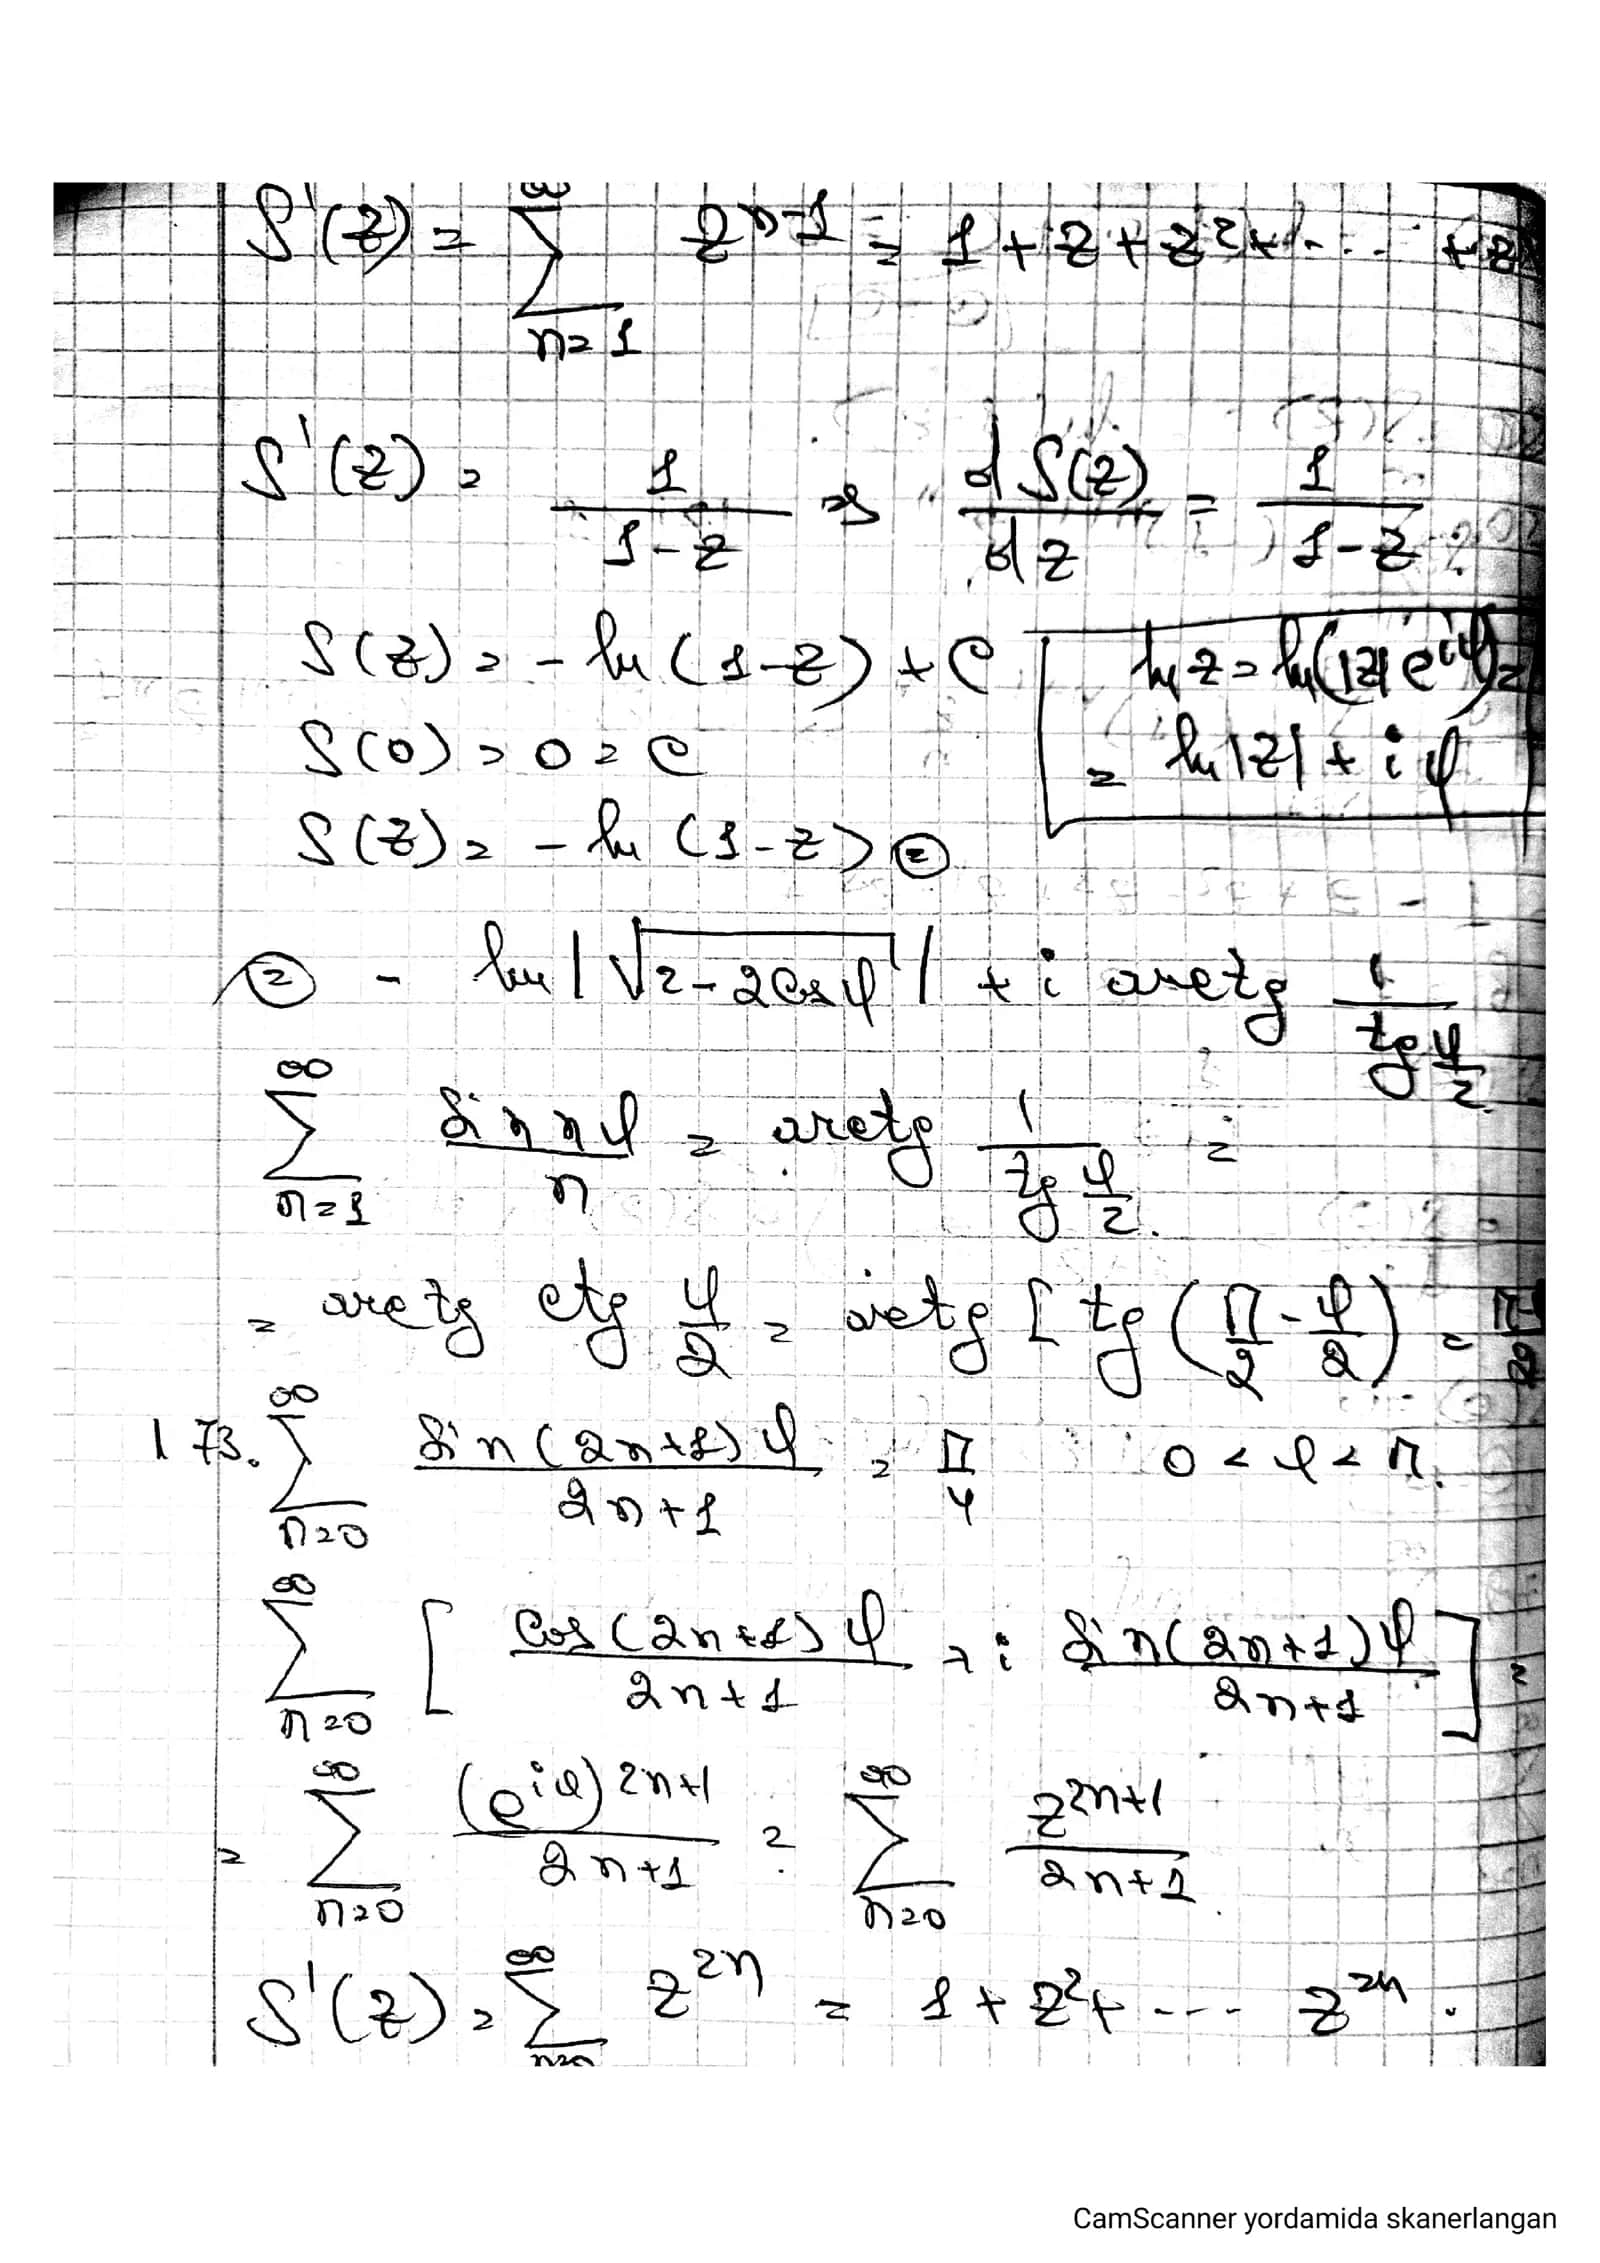 S'(z) = ∑_{n=1}^{∞} z^{n-1} = 1 + z + z² + ... + z
S'(z) = 1/(1-z) ⇒ dS(z)/dz = 1/(1-z)
S(z) = - ln (1-z) + C
ln z = ln(|z| e^{iφ}) =
S(0) = 0 = C
= ln |z| + i φ
S(z) = - ln (1-z) ⊜
⊜ - ln |√(2-2cos φ)| + i arctg 1/(tg φ/2)
∑_{n=1}^{∞} sin nφ / n = arctg 1/(tg φ/2) =
= arctg ctg φ/2 = arctg [ tg (π/2 - φ/2) =
173. ∑_{n=0}^{∞} sin(2n+1)φ / (2n+1) = π/4 0 < φ < π.
∑_{n=0}^{∞} [ cos(2n+1)φ / (2n+1) + i sin(2n+1)φ / (2n+1) ] =
= ∑_{n=0}^{∞} (e^{iφ})^{2n+1} / (2n+1) = ∑_{n=0}^{∞} z^{2n+1} / (2n+1)
S'(z) = ∑_{n=0}^{∞} z^{2n} = 1 + z² + ... z^{2n}.
CamScanner yordamida skanerlangan